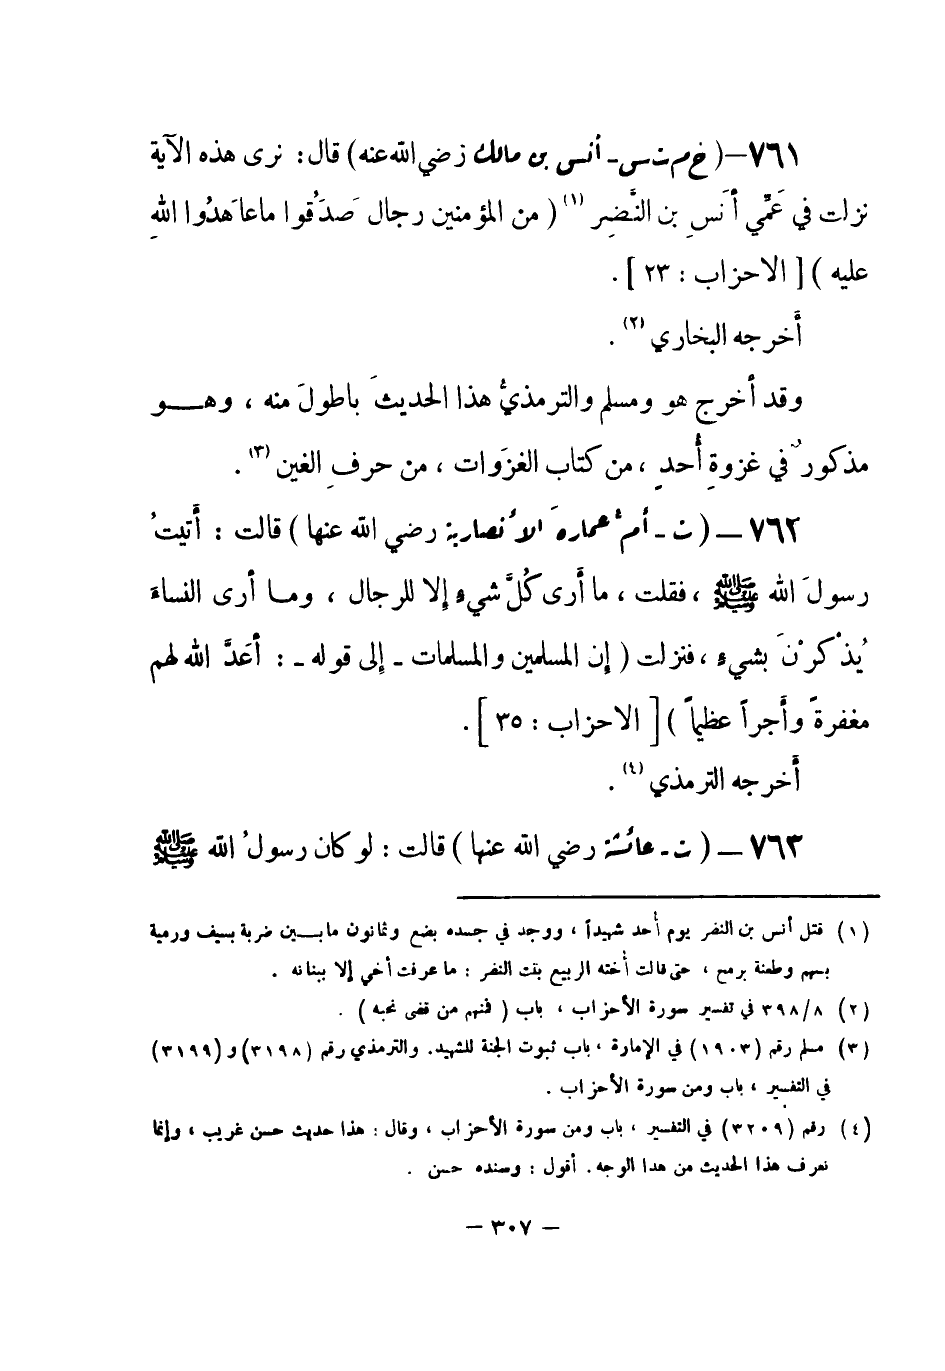 ٧٦١ – ( خ م ت س - أنس بن مالك رضي الله عنه ) قال : نرى هذه الآية
نزلت في عَمِّي أَنَسِ بن النَّضِر (١) ( من المؤمنين رجال صَدَقُوا ما عاهَدُوا اللهَ
عليه ) [ الاحزاب : ٢٣ ] .
أَخرجه البخاري (٢) .
وقد أخرج هو ومسلم والترمذيُّ هذا الحديثَ باطولَ منه ، وهـــو
مذكورٌ في غزوةِ أُحدٍ ، من كتاب الغزَوات ، من حرفِ الغين (٣) .
٧٦٢ – ( ت - أم عمارة الأنصارية رضي الله عنها ) قالت : أَتيتُ
رسولَ الله ﷺ ، فقلت ، ما أَرى كُلَّ شيءٍ إلا للرجال ، ومـا أرى النساءَ
يُذْكَرْنَ بشيءٍ ، فنزلت ( إن المسلمين والمسلمات - إلى قوله - : أَعَدَّ الله لهم
مغفرةً وأَجراً عظيماً ) [ الاحزاب : ٣٥ ] .
أَخرجه الترمذي (٤) .
٧٦٣ – ( ت - عائشة رضي الله عنها ) قالت : لو كان رسولُ الله ﷺ
(١) قتل أنس بن النضر يوم أُحد شهيداً ، ووجد في جسده بضع وثمانون مابـــين ضربة بسيف ورمية
بسهم وطعنة برمح ، حتى قالت أُخته الربيع بنت النضر : ما عرفت أخي إلا ببنانه .
(٢) ٣٩٨/٨ في تفسير سورة الأحزاب ، باب ( فمنهم من قضى نحبه ) .
(٣) مسلم رقم (١٩٠٣) في الإمارة ، باب ثبوت الجنة للشهيد. والترمذي رقم (٣١٩٨) و (٣١٩٩)
في التفسير ، باب ومن سورة الأحزاب .
(٤) رقم (٣٢٠٩) في التفسير ، باب ومن سورة الأحزاب ، وقال : هذا حديث حسن غريب ، وإنما
نعرف هذا الحديث من هذا الوجه. أقول : وسنده حسن .
– ٣٠٧ –